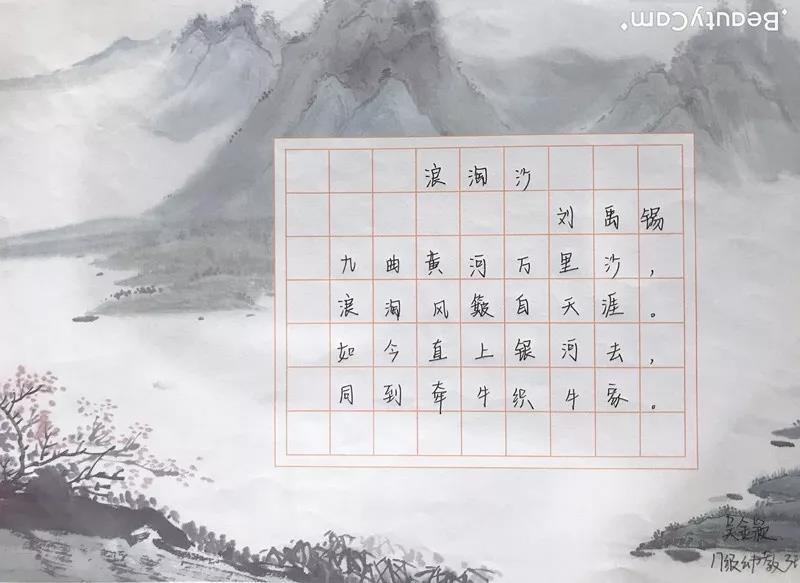 浪淘沙
刘禹锡
九曲黄河万里沙，
浪淘风簸自天涯。
如今直上银河去，
同到牵牛织牛家。
17级幼教3
BeautyCam.